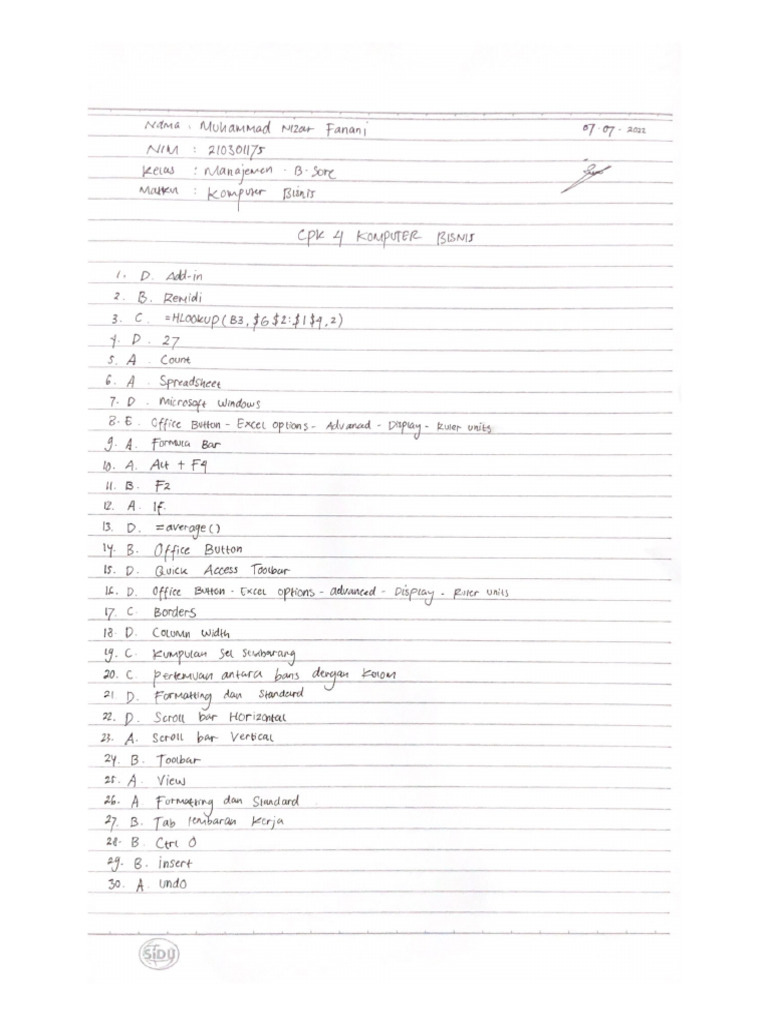 Nama : Muhammad Nizar Fanani 07-07-2022
NIM : 210301175
Kelas : Manajemen - B - Sore
Matkul : Komputer Bisnis
CPK 4 KOMPUTER BISNIS
1. D. Add-in
2. B. Remidi
3. C. =HLOOKUP(B3,$G$2:$1$4,2)
4. D. 27
5. A. Count
6. A. Spreadsheet
7. D. Microsoft Windows
8. E. Office Button - Excel Options - Advanced - Display - Ruler units
9. A. Formula Bar
10. A. Alt + F4
11. B. F2
12. A. If
13. D. =average()
14. B. Office Button
15. D. Quick Access Toolbar
16. D. Office Button - Excel options - advanced - Display - Ruler units
17. C. Borders
18. D. Column Width
19. C. Kumpulan Sel Sembarang
20. C. Pertemuan antara baris dengan kolom
21. D. Formatting dan Standard
22. D. Scroll bar Horizontal
23. A. Scroll bar Vertical
24. B. Toolbar
25. A. View
26. A. Formatting dan Standard
27. B. Tab lembaran kerja
28. B. Ctrl O
29. B. insert
30. A. undo
SIDU